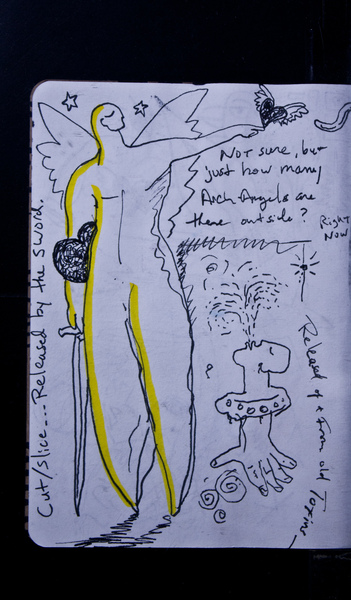 Not sure, but
just how many
Arch Angels are
there outside?
Right
Now
Cut/slice...Released by the sword.
Released of & from old Toxins